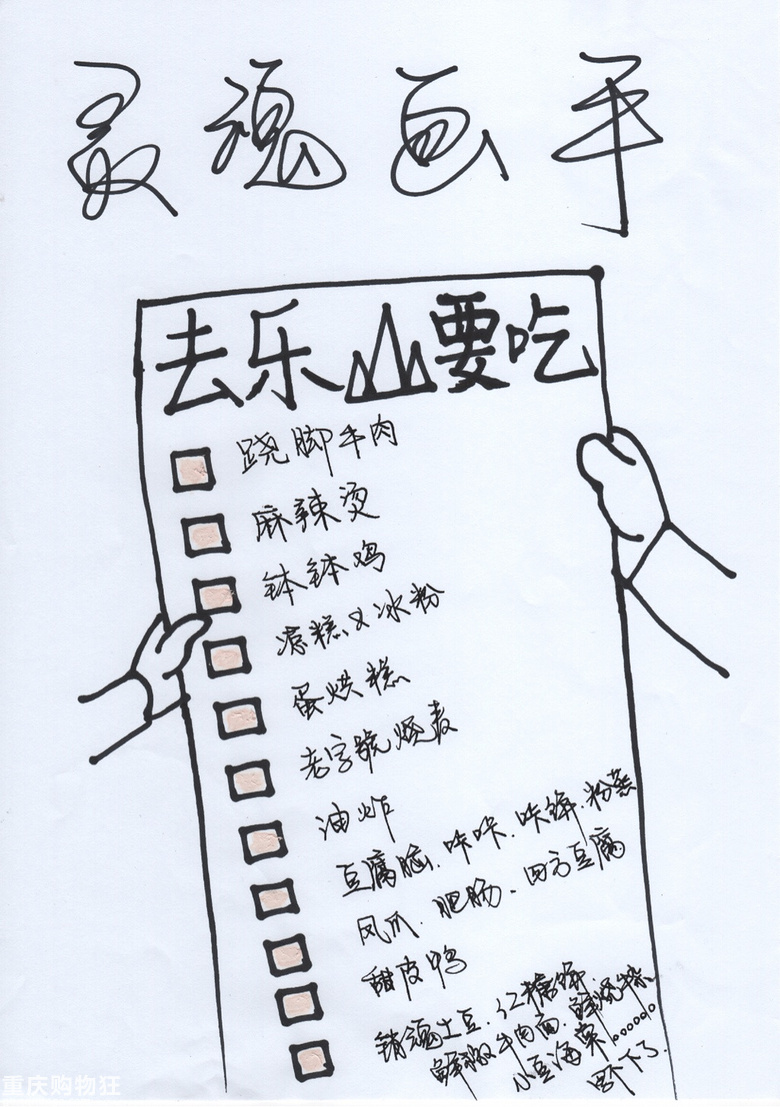 灵魂画手
去乐山要吃
跷脚牛肉
麻辣烫
钵钵鸡
凉糕又冰粉
蛋烘糕
老字號烧麦
油炸
豆腐脑.咔咔.咔饼.粉蒸
凤爪.肥肠.四方豆腐
甜皮鸭
销魂土豆.红糖饼
鲜椒牛肉面.
小豆海寞......
卧下了.
重庆购物狂